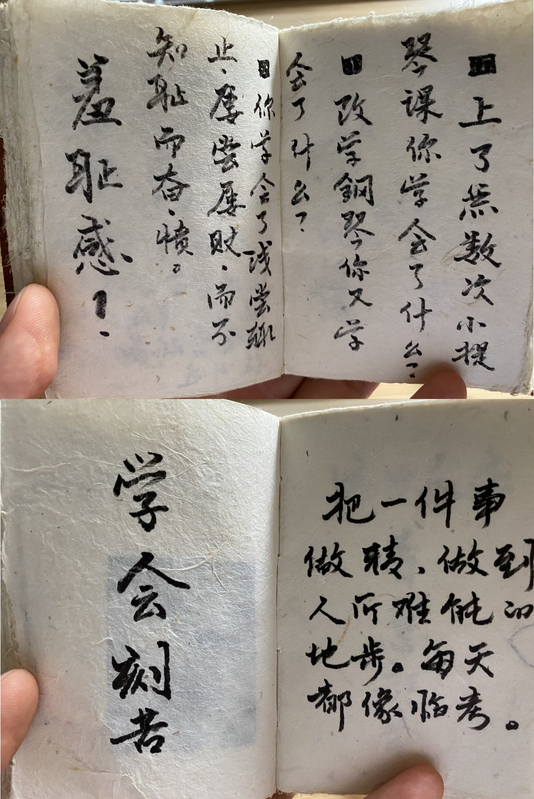 上了無数次小提
琴课你学会了什么?
改学鋼琴你又学
会了什么?
你学会了浅尝辄
止、屡尝屡败、而不
知耻而奋、愤。
羞耻感!
学会刻苦
把一件事
做精、做到
人所难能的
地步。每天
都像临考。